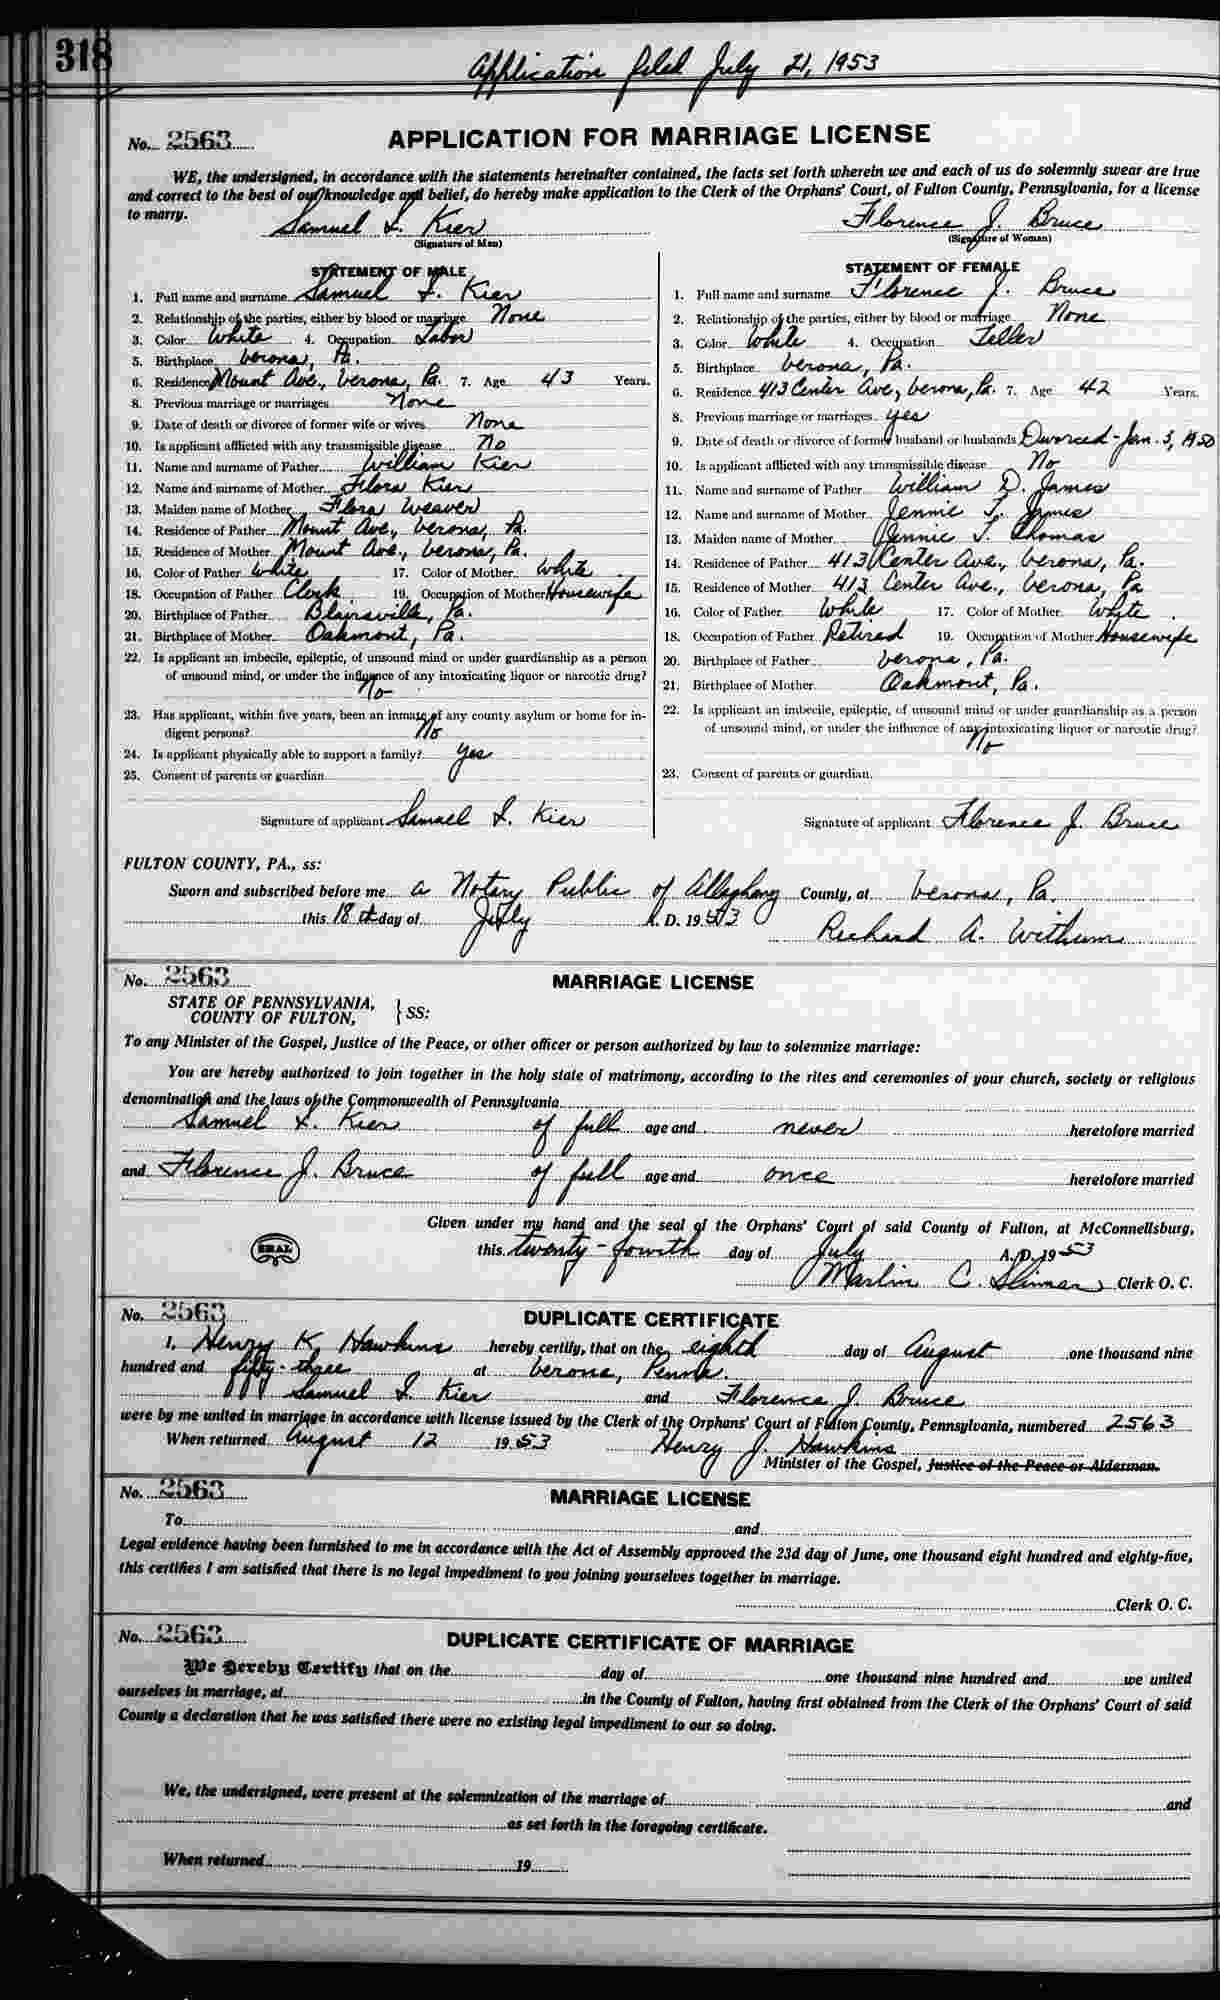 318
Application filed July 21, 1953
No. 2563 APPLICATION FOR MARRIAGE LICENSE
WE, the undersigned, in accordance with the statements hereinafter contained, the facts set forth wherein we and each of us do solemnly swear are true
and correct to the best of our knowledge and belief, do hereby make application to the Clerk of the Orphans' Court, of Fulton County, Pennsylvania, for a license
to marry.
Samuel I. Kier Florence J. Bruce
(Signature of Man) (Signature of Woman)
STATEMENT OF MALE
1. Full name and surname Samuel I. Kier
2. Relationship of the parties, either by blood or marriage None
3. Color White 4. Occupation Labor
5. Birthplace Verona, Pa.
6. Residence Mount Ave., Verona, Pa. 7. Age 43 Years.
8. Previous marriage or marriages None
9. Date of death or divorce of former wife or wives None
10. Is applicant afflicted with any transmissible disease No
11. Name and surname of Father William Kier
12. Name and surname of Mother Flora Kier
13. Maiden name of Mother Flora Weaver
14. Residence of Father Mount Ave., Verona, Pa.
15. Residence of Mother Mount Ave., Verona, Pa.
16. Color of Father White 17. Color of Mother White
18. Occupation of Father Clerk 19. Occupation of Mother Housewife
20. Birthplace of Father Blairsville, Pa.
21. Birthplace of Mother Oakmont, Pa.
22. Is applicant an imbecile, epileptic, of unsound mind or under guardianship as a person
of unsound mind, or under the influence of any intoxicating liquor or narcotic drug?
No
23. Has applicant, within five years, been an inmate of any county asylum or home for in-
digent persons? No
24. Is applicant physically able to support a family? Yes
25. Consent of parents or guardian
Signature of applicant Samuel I. Kier
STATEMENT OF FEMALE
1. Full name and surname Florence J. Bruce
2. Relationship of the parties, either by blood or marriage None
3. Color White 4. Occupation Teller
5. Birthplace Verona, Pa.
6. Residence 413 Center Ave, Verona, Pa. 7. Age 42 Years.
8. Previous marriage or marriages Yes
9. Date of death or divorce of former husband or husbands Divorced - Jan. 3, 1950
10. Is applicant afflicted with any transmissible disease No
11. Name and surname of Father William D. James
12. Name and surname of Mother Jennie T. James
13. Maiden name of Mother Jennie T. Thomas
14. Residence of Father 413 Center Ave., Verona, Pa.
15. Residence of Mother 413 Center Ave., Verona, Pa
16. Color of Father White 17. Color of Mother White
18. Occupation of Father Retired 19. Occupation of Mother Housewife
20. Birthplace of Father Verona, Pa.
21. Birthplace of Mother Oakmont, Pa.
22. Is applicant an imbecile, epileptic, of unsound mind or under guardianship as a person
of unsound mind, or under the influence of any intoxicating liquor or narcotic drug?
No
23. Consent of parents or guardian.
Signature of applicant Florence J. Bruce
FULTON COUNTY, PA., ss:
Sworn and subscribed before me a Notary Public of Allegheny County, at Verona, Pa.
this 18th day of July A. D. 1953
Richard A. Withum
No. 2563 MARRIAGE LICENSE
STATE OF PENNSYLVANIA,
COUNTY OF FULTON, } SS:
To any Minister of the Gospel, Justice of the Peace, or other officer or person authorized by law to solemnize marriage:
You are hereby authorized to join together in the holy state of matrimony, according to the rites and ceremonies of your church, society or religious
denomination and the laws of the Commonwealth of Pennsylvania
Samuel I. Kier of full age and never heretofore married
and Florence J. Bruce of full age and once heretofore married
Given under my hand and the seal of the Orphans' Court of said County of Fulton, at McConnellsburg,
SEAL this twenty-fourth day of July A. D. 1953
Marlin C. Clerk O. C.
No. 2563 DUPLICATE CERTIFICATE
I, Henry K. Hawkins hereby certify, that on the eighth day of August one thousand nine
hundred and fifty-three at Verona, Penna.
Samuel I. Kier and Florence J. Bruce
were by me united in marriage in accordance with license issued by the Clerk of the Orphans' Court of Fulton County, Pennsylvania, numbered 2563
When returned August 12 1953 Henry J. Hawkins
Minister of the Gospel, Justice of the Peace or Alderman.
No. 2563 MARRIAGE LICENSE
To and
Legal evidence having been furnished to me in accordance with the Act of Assembly approved the 23d day of June, one thousand eight hundred and eighty-five,
this certifies I am satisfied that there is no legal impediment to you joining yourselves together in marriage.
Clerk O. C.
No. 2563 DUPLICATE CERTIFICATE OF MARRIAGE
We Hereby Certify that on the day of one thousand nine hundred and we united
ourselves in marriage, at in the County of Fulton, having first obtained from the Clerk of the Orphans' Court of said
County a declaration that he was satisfied there were no existing legal impediment to our so doing.
We, the undersigned, were present at the solemnization of the marriage of and
as set forth in the foregoing certificate.
When returned 19